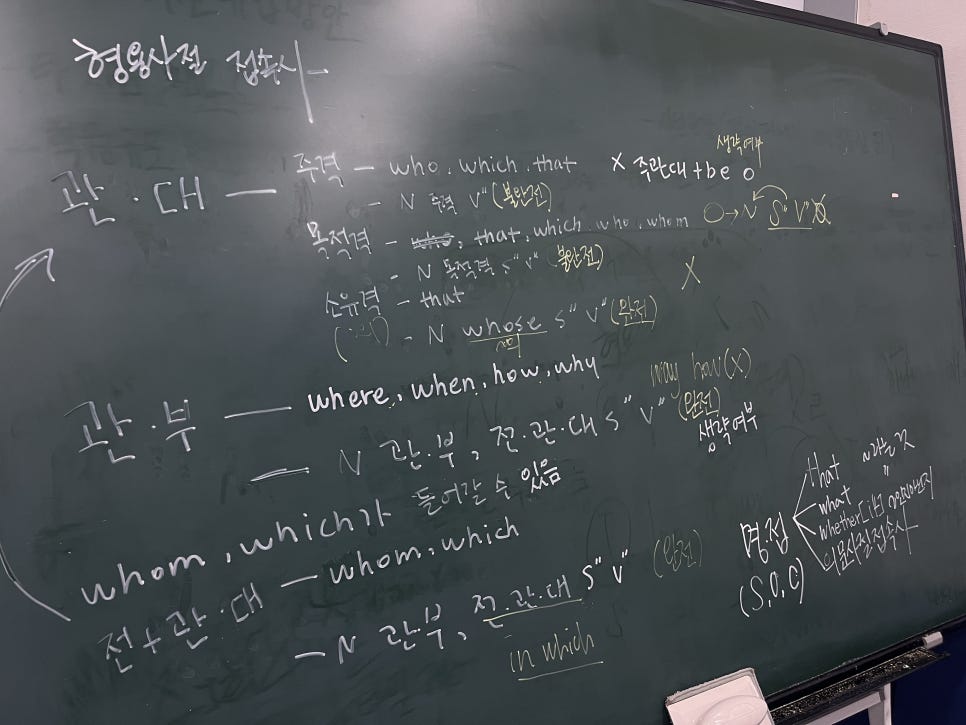 형용사절 접속사
관·대 — 주격 – who, which, that X 주관대+be O 생략여부
– N 주격 V" (불완전)
목적격 – who, that, which, who, whom O→N S" V" O
– N 목적격 S" V" (불완전)
소유격 – that X
– N whose S" V" (완전)
~의
관·부 — where, when, how, why way how(X)
— N 관·부, 전·관·대 S" V" (완전)
생략여부
whom, which가 들어갈 수 있음
전+관·대 — whom, which
– N 관·부, 전·관·대 S" V" (완전)
in which
명·접 that ~라는 것
(S, O, C) what "
whether[if] ~인지 아닌지
의문사절 접속사